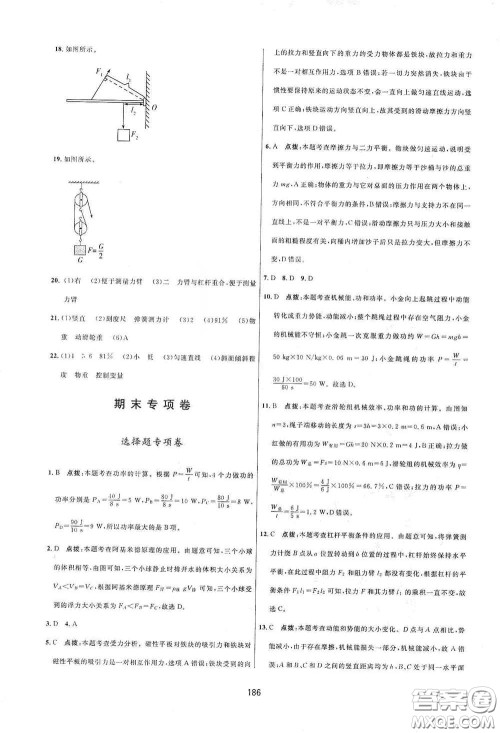 18. 如图所示。
F₁ l₁ l₂ O F₂
19. 如图所示。
G F=G/2
20. (1)右 (2)便于测量力臂 (3)二 力臂与杠杆重合,便于测量
力臂
21. (1)竖直 (2)刻度尺 弹簧测力计 (3)2 (4)91% (5)
物重 动滑轮重 (6)A
22. (1)1 >6 81% (2)小 低 (3)91% (4)斜面倾斜程
度 物重 控制变量
期末专项卷
选择题专项卷
1. B 点拨:本题考查功率的计算。根据 P=W/t 可知,4个力做功的
功率分别是 P_A=40 J/8 s=5 W,P_B=80 J/5 s=16 W,P_C=80 J/10 s=8 W,
P_D=90 J/10 s=9 W,所以功率最大的是 B 项。
2. D 点拨:本题考查阿基米德原理的应用。由题意可知,三个小球
的体积相等。由图可知,三个小球静止时排开水的体积大小关系
为 V_A<V_B=V_C,根据阿基米德原理 F浮=ρ液gV排 可知,三个小球受
到的浮力大小关系为 F_A<F_B=F_C。故选 D。
3. D 4. A
5. C 点拨:本题考查受力分析。磁性平板对铁块的吸引力和铁块对
磁性平板的吸引力是一对相互作用力,选项 A 错误;铁块受到的向
上的拉力和竖直向下的重力的受力物体都是铁块,故拉力和重力
不是一对相互作用力,选项 B 错误;若一切力突然消失,铁块由于
惯性要保持原来的运动状态不变,会一直向上做匀速直线运动,选
项 C 正确;铁块运动方向竖直向上,故其受到的滑动摩擦力方向竖
直向下,选项 D 错误。
6. A 点拨:本题考查摩擦力与二力平衡。物块做匀速运动,说明受
到平衡力的作用,摩擦力等于拉力,即摩擦力等于沙桶与沙的总重
力 mg,A 正确;物体的重力与它对桌面的压力作用在两个物体上,
方向相同,不符合平衡力的条件,B 错误;摩擦力与支持力不在同一
直线上,不是一对平衡力,C 错误;滑动摩擦力只与压力大小和接触
面的粗糙程度有关,向桶内增加沙子后只是拉力变大,但摩擦力不
变,D 错误。
7. D 8. D 9. D
10. D 点拨:本题考查机械能、功和功率。小金向上起跳过程中动能
转化成重力势能,动能减小;小金上升过程中存在空气阻力,机械
能不守恒;小金跳绳一次克服重力做功 W=Gh=mgh=
50 kg×10 N/kg×0.06 m=30 J;小金跳绳的功率 P=W/t=
30 J×100/60 s=50 W。故选 D。
11. B 点拨:本题考查滑轮组机械效率、功率和功的计算。由图可
知,绳子端移动的长度 s=3h=3×0.2 m=0.6 m,A 错误;小
红做的有用功为 W有用=Gh=20 N×0.2 m=4 J,总功为 W总=
Fs=10 N×0.6 m=6 J,C 错误;滑轮组的机械效率为 η=
W有用/W总×100%=4 J/6 J×100%≈66.7%,B 正确;拉力的功率为 P=
W总/t=6 J/5 s=1.2 W,D 错误。
12. B 点拨:本题考查杠杆平衡条件的应用。由题意可知,将弹簧测
力计绕 B 点从 a 位置转动到 b 位置的过程中,杠杆始终保持水平
平衡,在此过程中阻力 F₂ 和阻力臂 l₂ 都没有变化,根据杠杆的平
衡条件 F₁l₁=F₂l₂ 可知,拉力 F₁ 和力臂 l₁ 的乘积不变。
13. C 点拨:本题考查动能和势能的大小变化。
186
答案圈